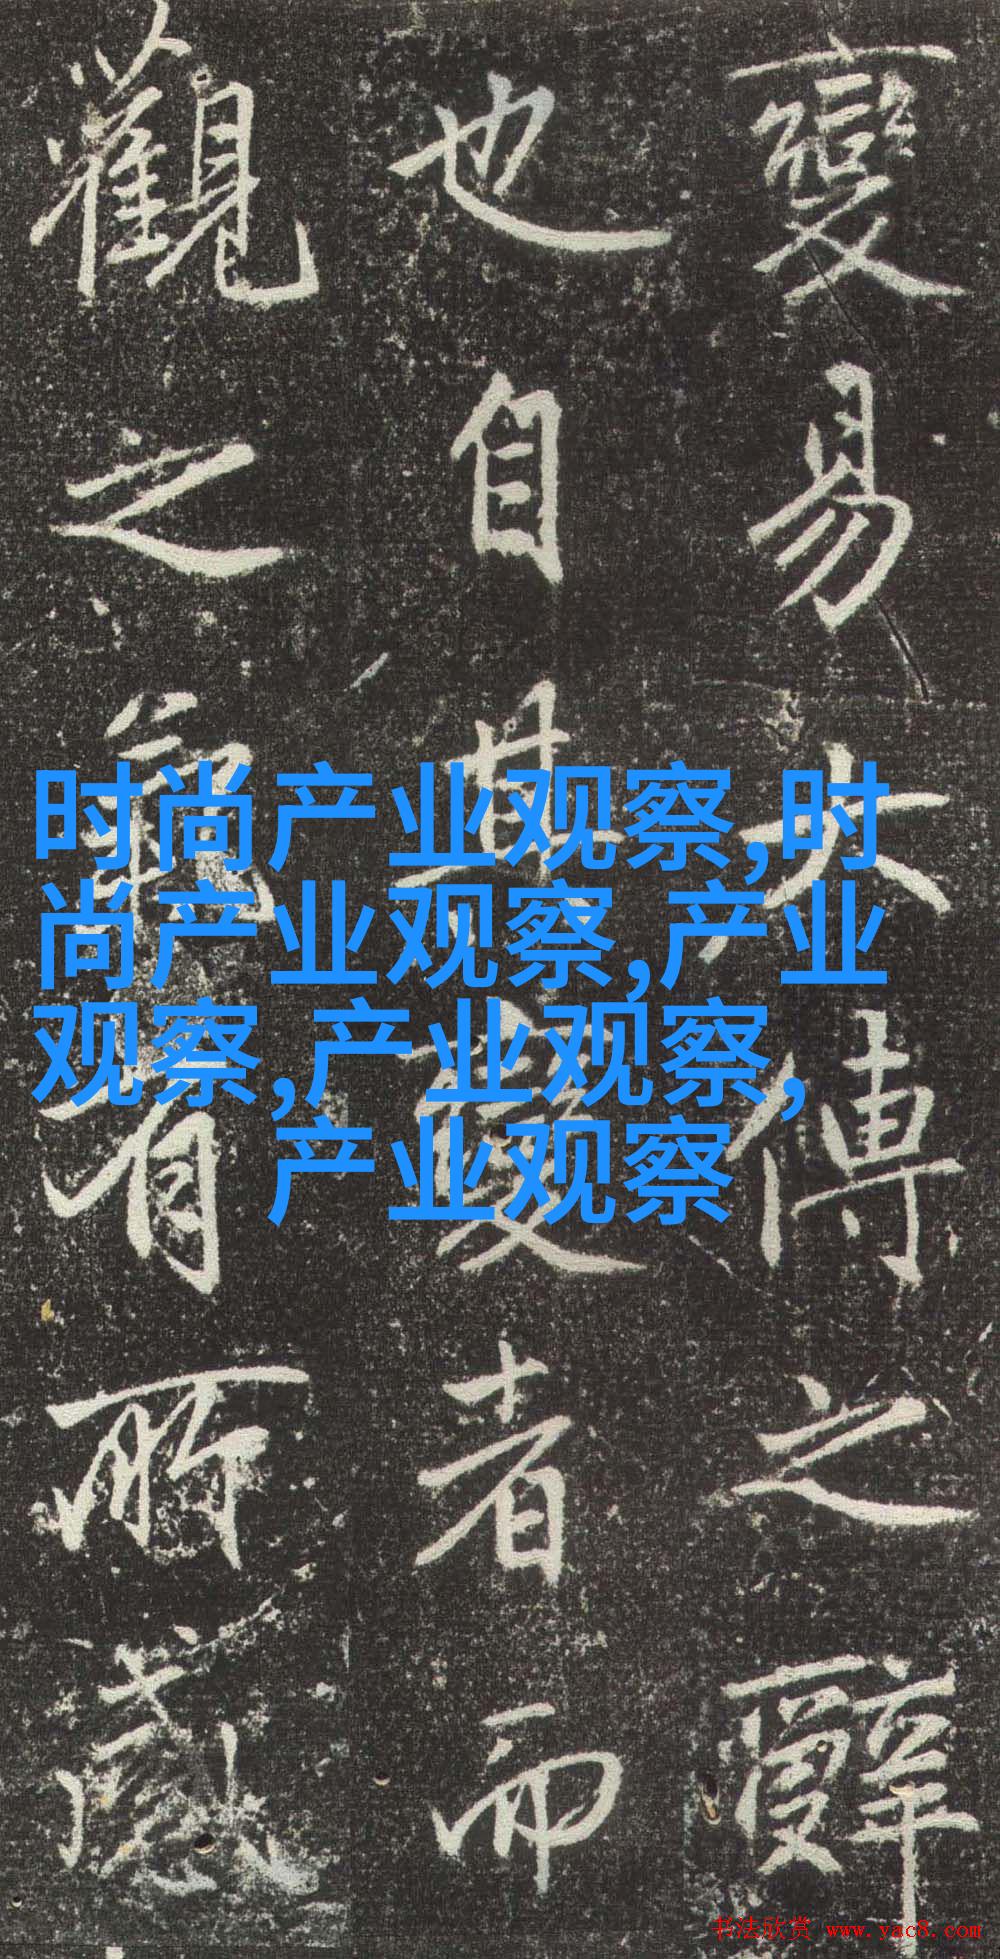 變易大傳之辭
也自其變者而
觀之有所感
时尚产业观察,时
尚产业观察,产业
观察,产业观察,
产业观察
书法欣赏 www.yac8.com